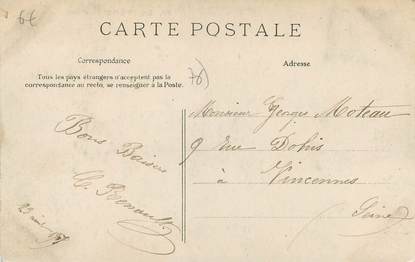 6€
CARTE POSTALE
Correspondance
Adresse
Tous les pays étrangers n'acceptent pas la
correspondance au recto, se renseigner à la Poste.
78)
Bons Baisers
Monsieur Georges Moteau
9 rue Dohis
à Vincennes
Seine